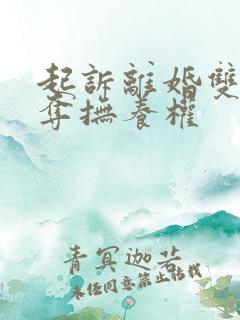 起訴離婚雙
奪撫養權
青冥迦若
未經同意禁止轉載